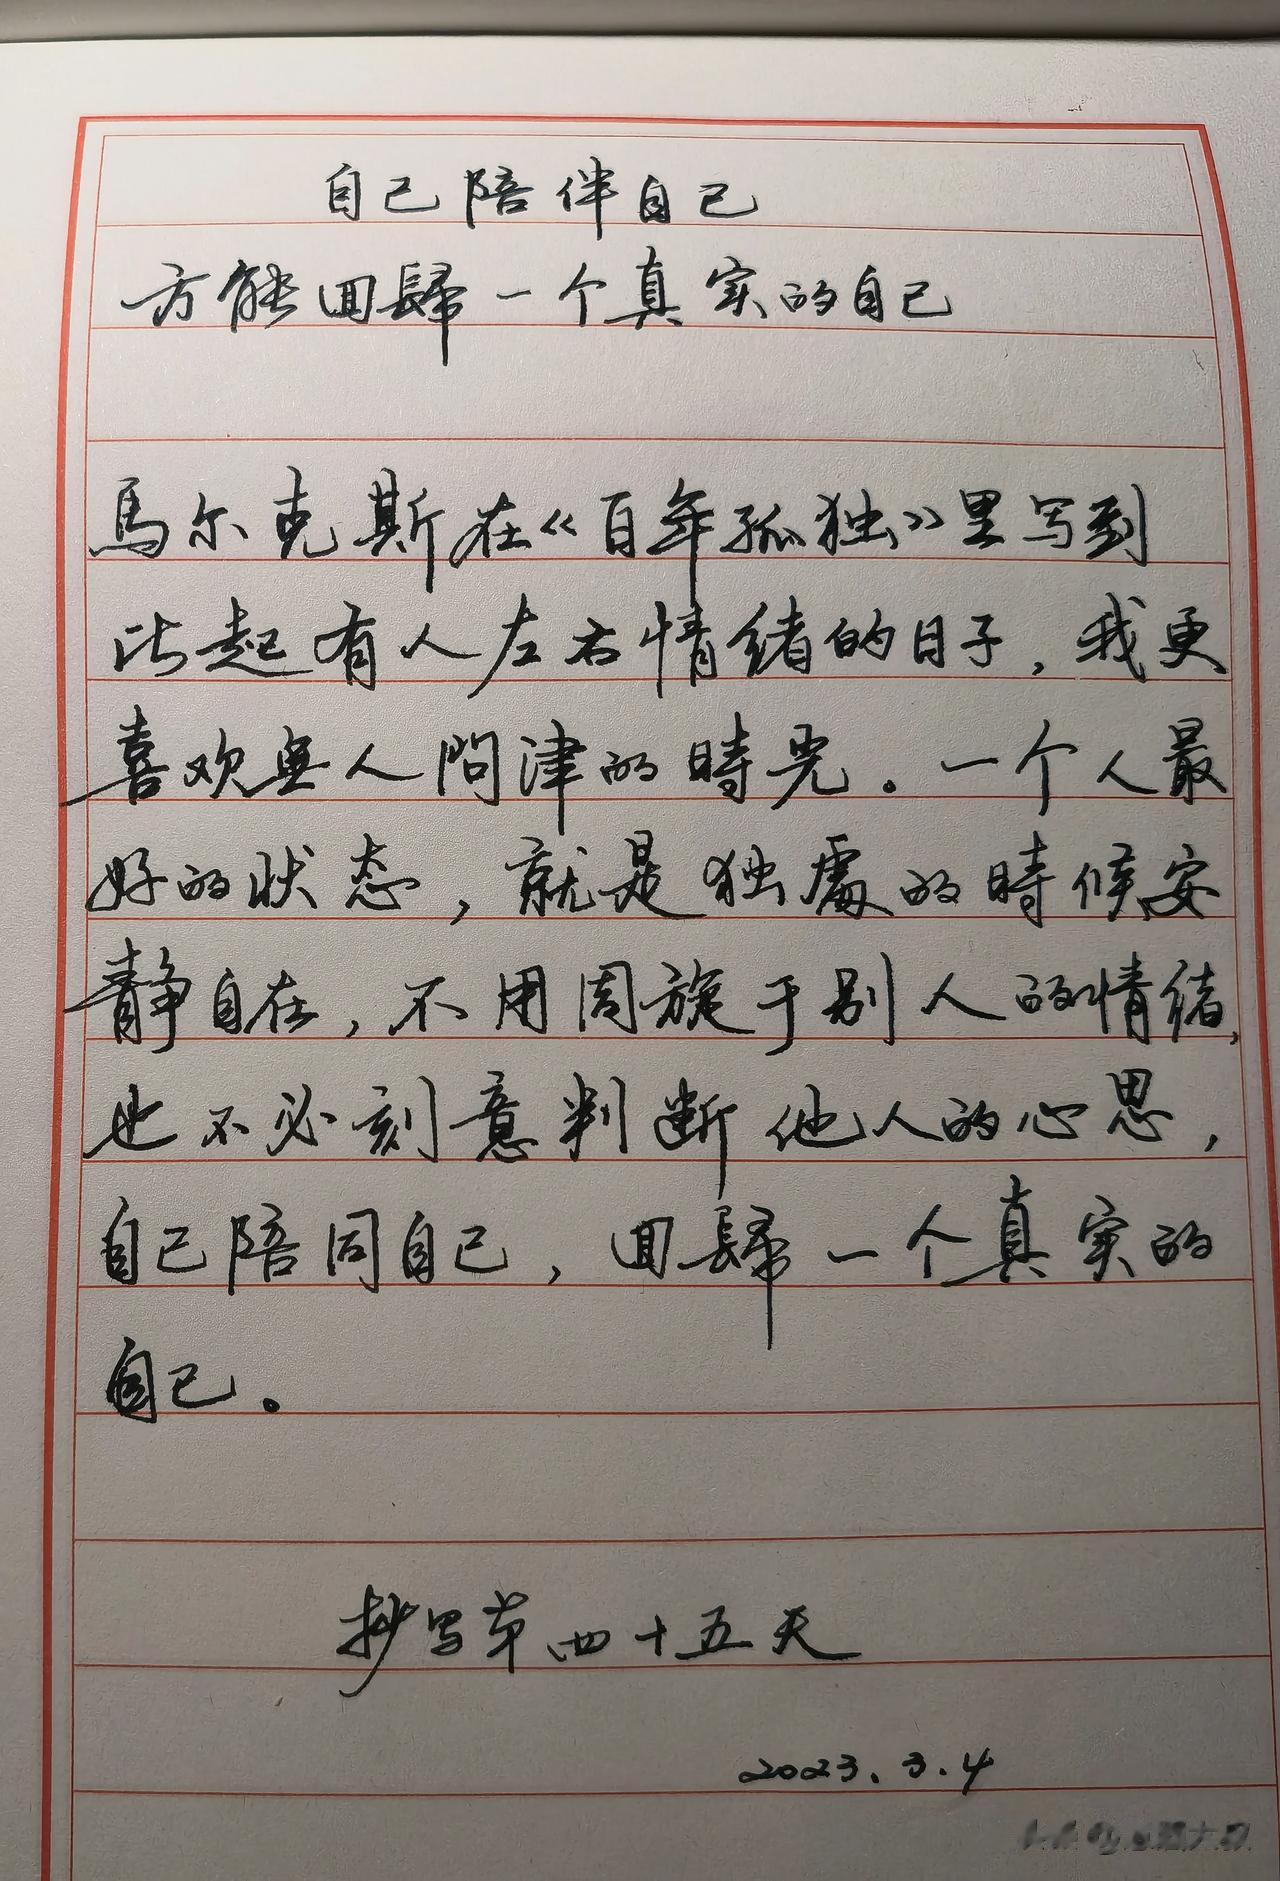 自己陪伴自己
方能回歸一个真实的自己
馬尔克斯在《百年孤独》里写到
比起有人左右情绪的日子，我更
喜欢無人問津的時光。一个人最
好的状态，就是独處的時候，安
静自在，不用周旋于别人的情绪，
也不必刻意判断他人的心思，
自己陪同自己，回歸一个真实的
自己。
抄写第四十五天
2023.3.4